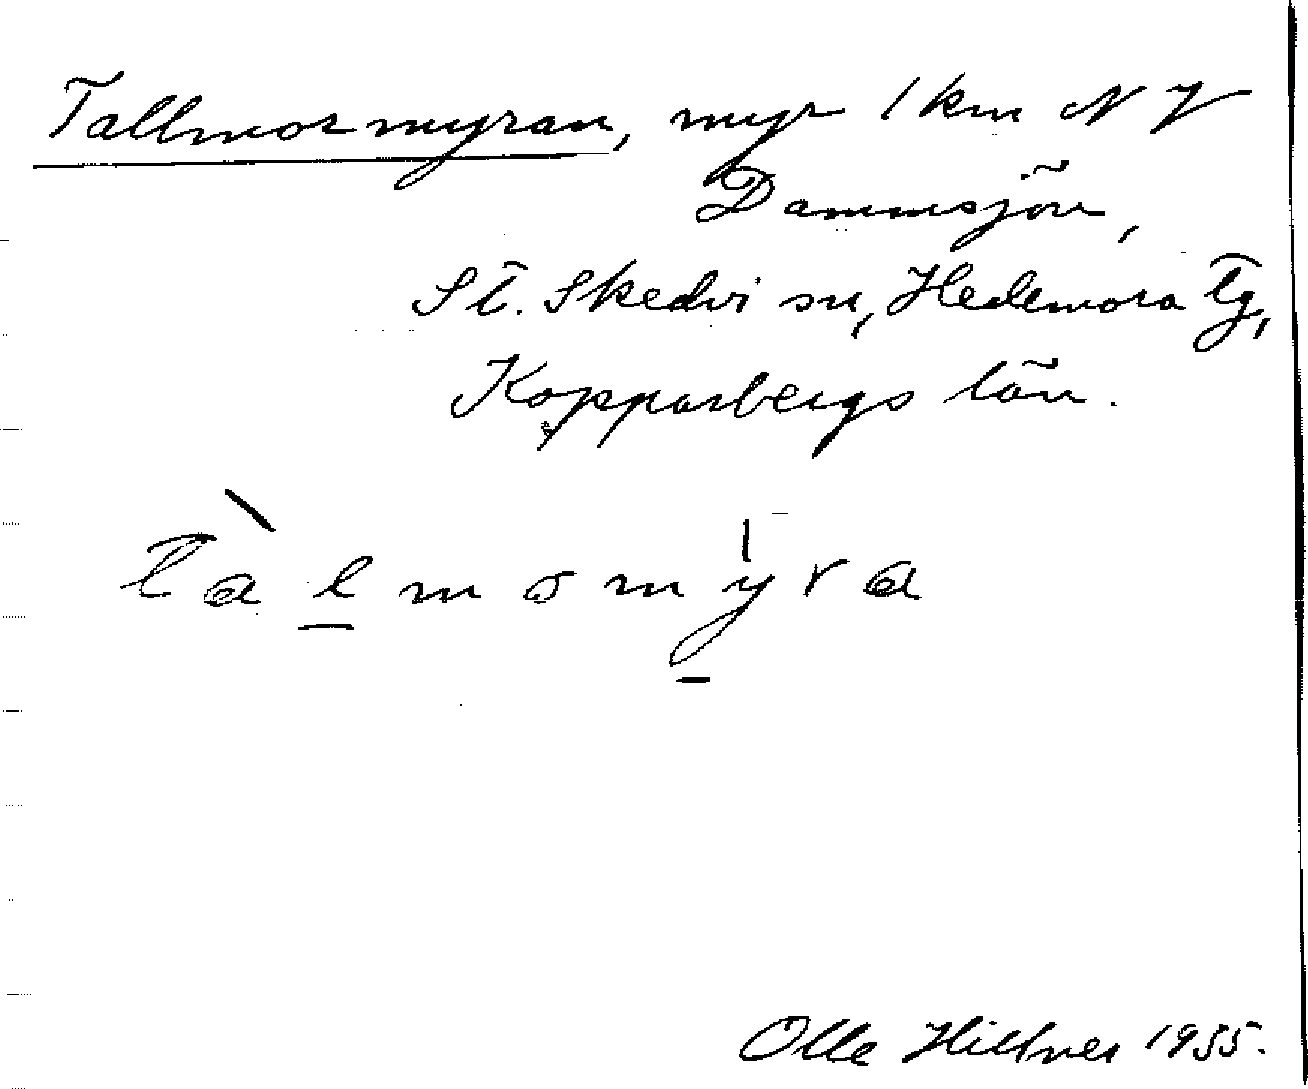 Tallmormyran, myr 1 km NV
Dammsjön,
St. Skedvi sn, Hedemora tg,
Kopparbergs län.
tàlmomýra
Olle Hillner 1955.